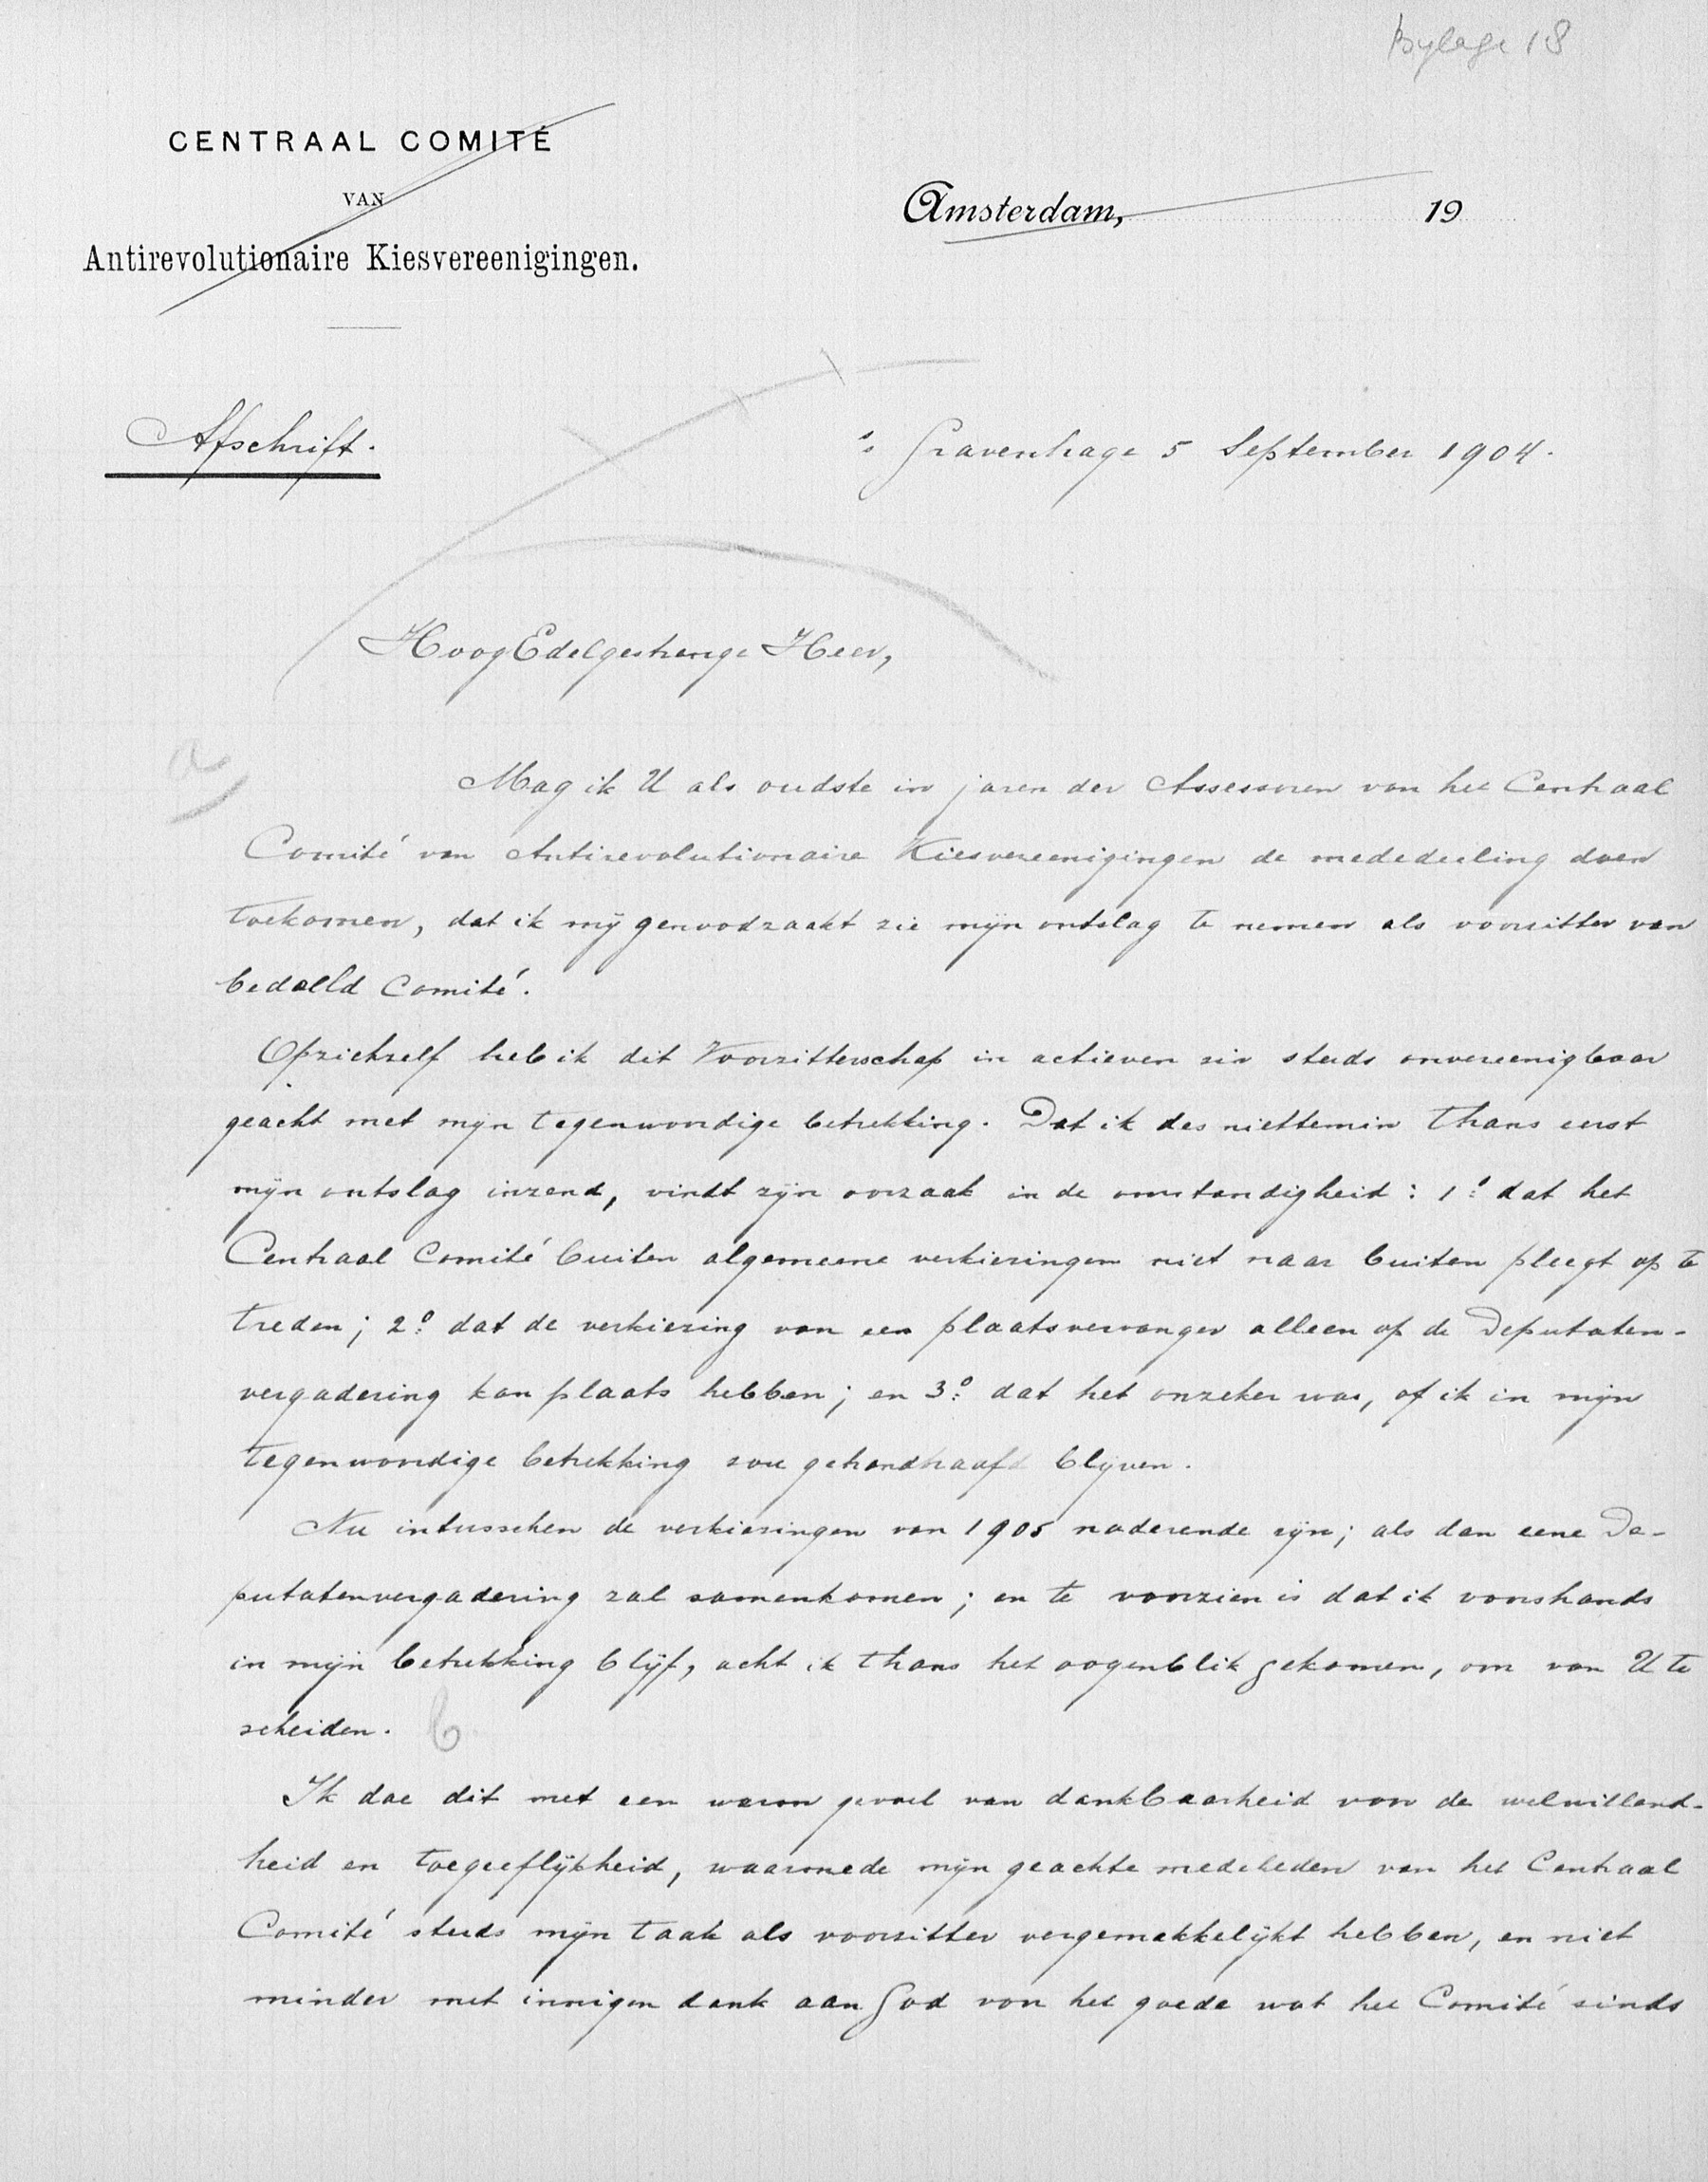 Bylage 18
CENTRAAL COMITÉ
VAN
Antirevolutionaire Kiesvereenigingen.
Amsterdam, 19
Afschrift.
's Gravenhage 5 September 1904.
HoogEdelgestrenge Heer,
a
Mag ik U als oudste in jaren der Assessoren van het Centraal
Comité van Antirevolutionaire Kiesvereenigingen de mededeeling doen
toekomen, dat ik mij genoodzaakt zie mijn ontslag te nemen als voorzitter van
bedoeld Comité.
Opzichzelf heb ik dit Voorzitterschap in actieven zin steeds onvereenigbaar
geacht met mijn tegenwoordige betrekking. Dat ik des niettemin thans eerst
mijn ontslag inzend, vindt zijn oorzaak in de omstandigheid: 1º dat het
Centraal Comité buiten algemeene verkiezingen niet naar buiten pleegt op te
treden; 2º dat de verkiezing van een plaatsvervanger alleen op de Deputaten-
vergadering kan plaats hebben; en 3º dat het onzeker was, of ik in mijn
tegenwoordige betrekking zou gehandhaafd blijven.
Nu intusschen de verkiezingen van 1905 naderende zijn; als dan eene De-
putatenvergadering zal samenkomen; en te voorzien is dat ik voorshands
in mijn betrekking blijf, acht ik thans het oogenblik gekomen, om van U te
scheiden. b
Ik doe dit met een warm gevoel van dankbaarheid voor de welwillend-
heid en toegeeflijkheid, waarmede mijn geachte medeleden van het Centraal
Comité steeds mijn taak als voorzitter vergemakkelijkt hebben, en niet
minder met innigen dank aan God voor het goede wat het Comité sinds